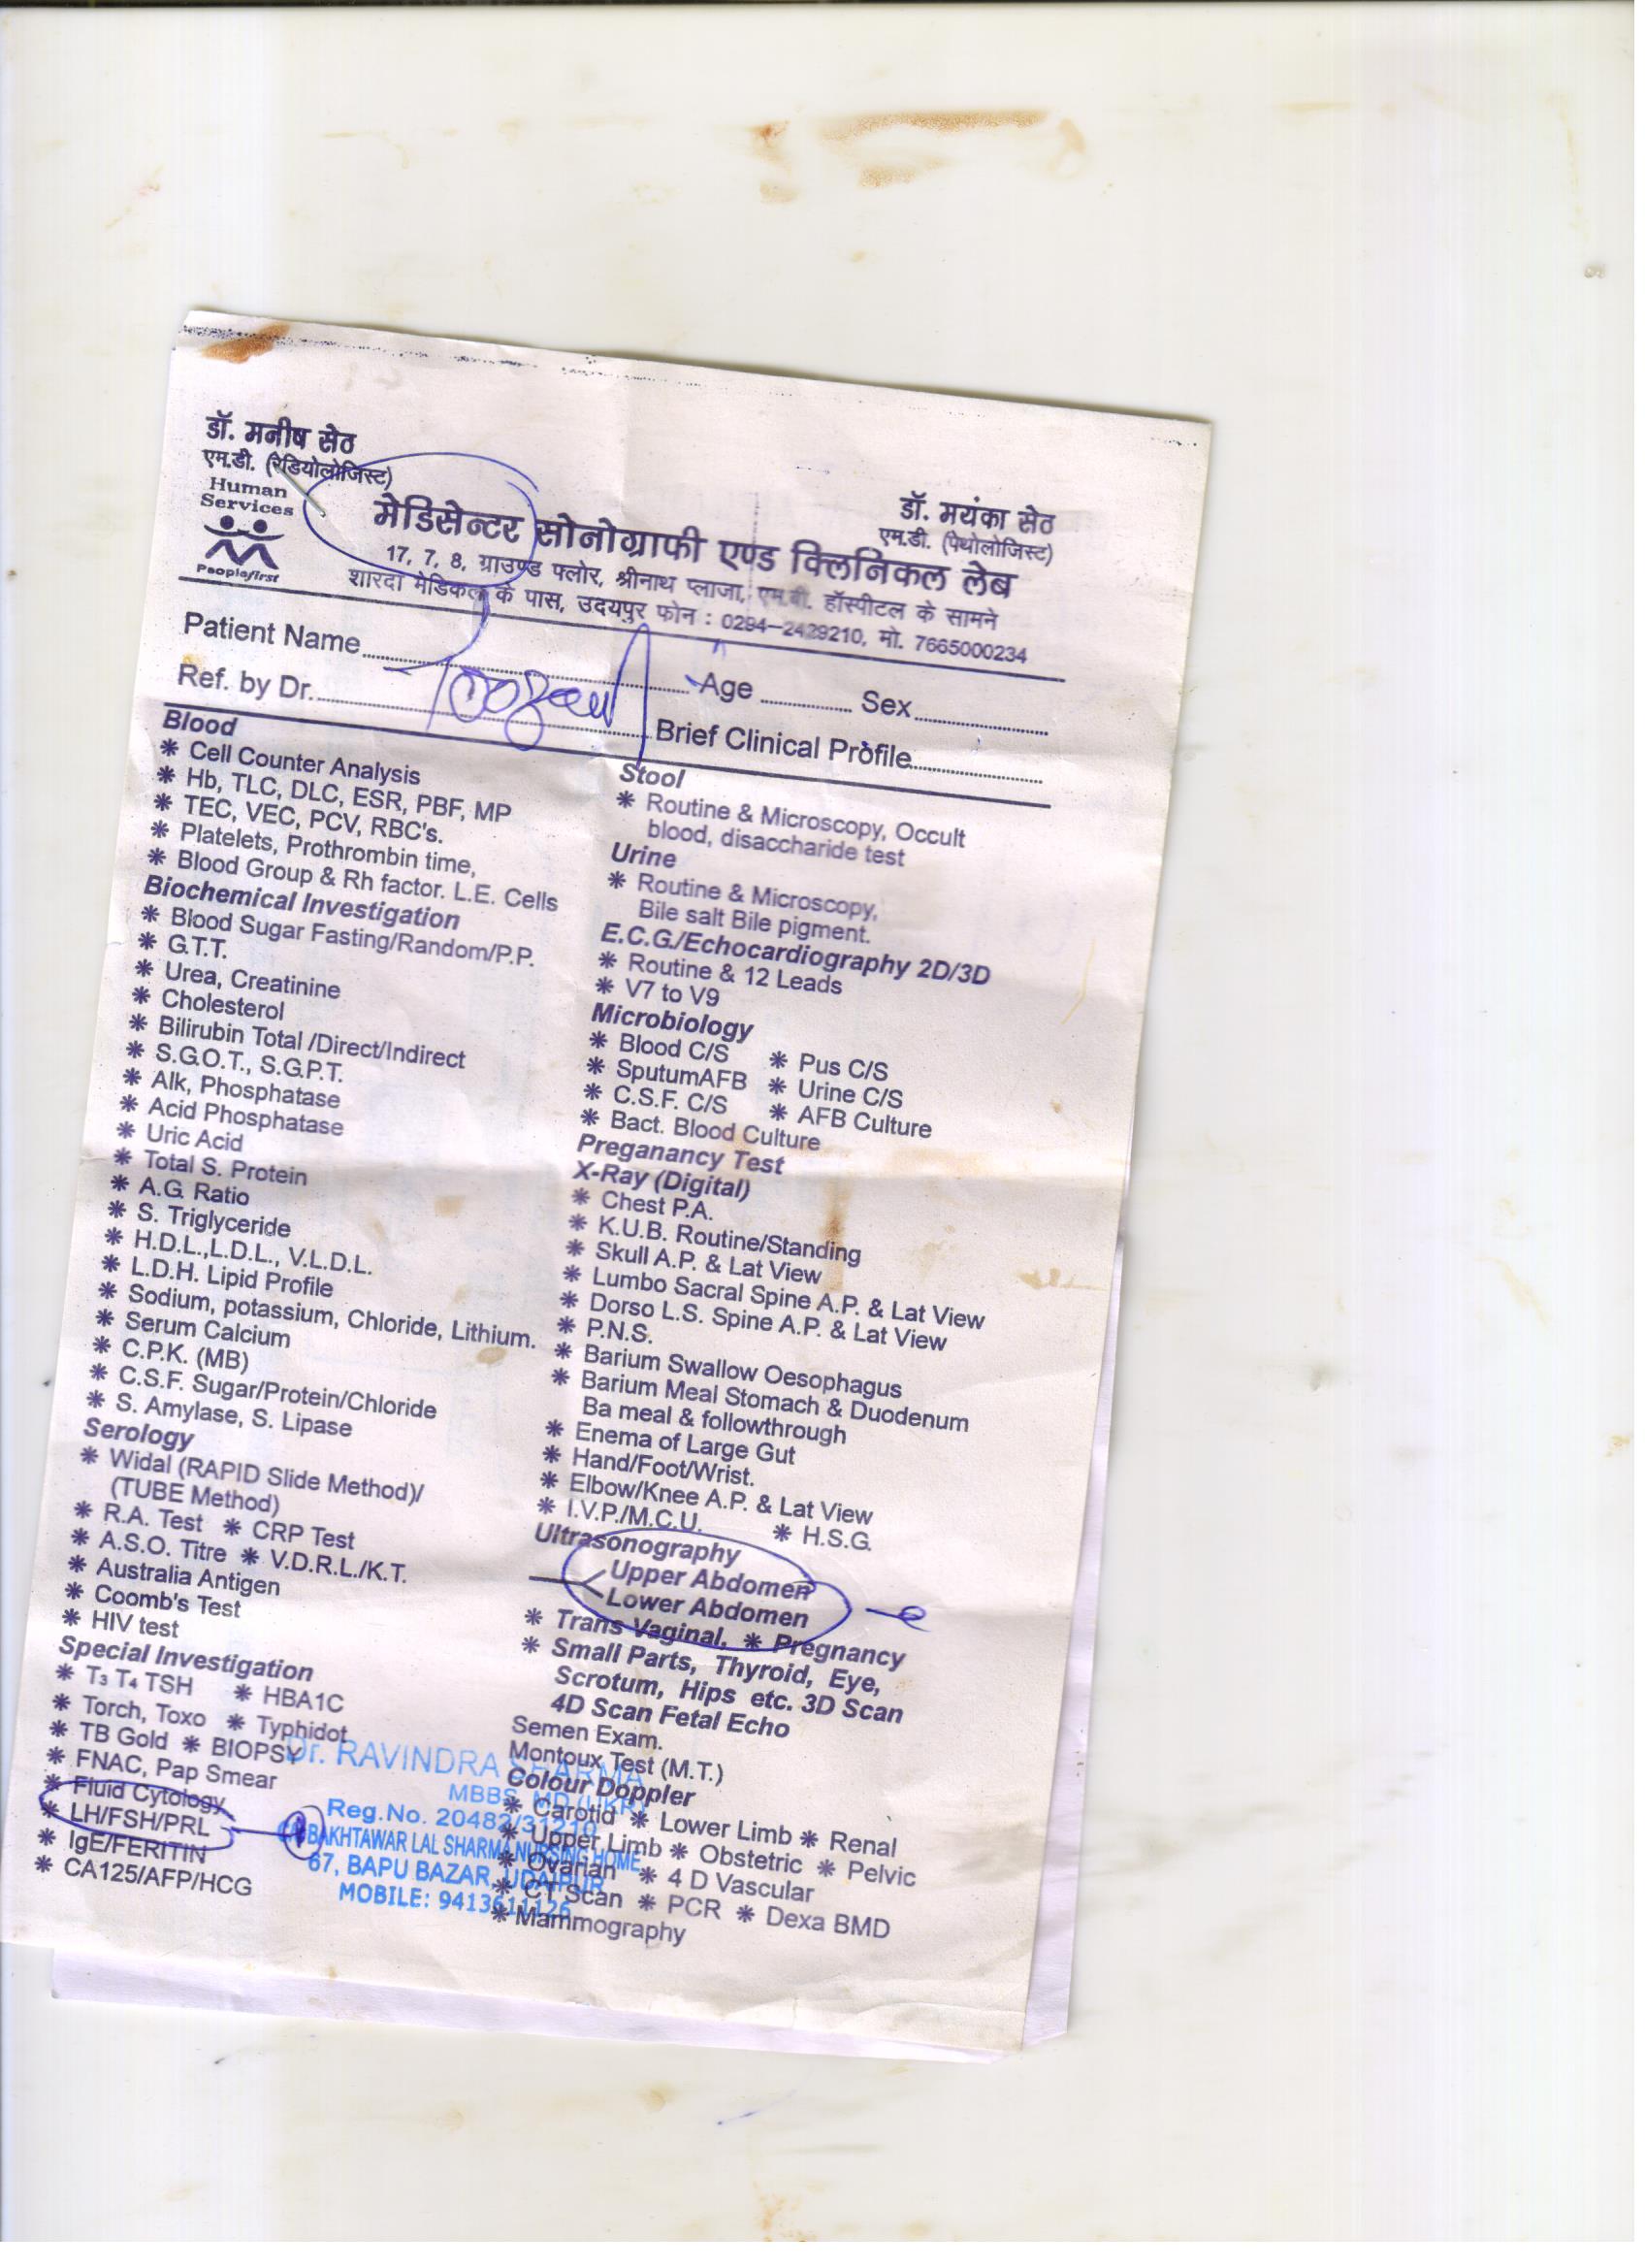 डॉ. मनीष सेठ
एम.डी. (रेडियोलोजिस्ट)
Human
Services
Peoplefirst
डॉ. मयंका सेठ
एम.डी. (पेथोलोजिस्ट)
मेडिसेन्टर सोनोग्राफी एण्ड क्लिनिकल लेब
17, 7, 8, ग्राउण्ड फ्लोर, श्रीनाथ प्लाजा, एम.बी. हॉस्पीटल के सामने
शारदा मेडिकल के पास, उदयपुर फोन : 0294-2429210, मो. 7665000234
Patient Name Age Sex
Ref. by Dr. Brief Clinical Profile
Blood
* Cell Counter Analysis
* Hb, TLC, DLC, ESR, PBF, MP
* TEC, VEC, PCV, RBC's.
* Platelets, Prothrombin time,
* Blood Group & Rh factor. L.E. Cells
Biochemical Investigation
* Blood Sugar Fasting/Random/P.P.
* G.T.T.
* Urea, Creatinine
* Cholesterol
* Bilirubin Total /Direct/Indirect
* S.G.O.T., S.G.P.T.
* Alk, Phosphatase
* Acid Phosphatase
* Uric Acid
* Total S. Protein
* A.G. Ratio
* S. Triglyceride
* H.D.L.,L.D.L., V.L.D.L.
* L.D.H. Lipid Profile
* Sodium, potassium, Chloride, Lithium.
* Serum Calcium
* C.P.K. (MB)
* C.S.F. Sugar/Protein/Chloride
* S. Amylase, S. Lipase
Serology
* Widal (RAPID Slide Method)/
(TUBE Method)
* R.A. Test * CRP Test
* A.S.O. Titre * V.D.R.L./K.T.
* Australia Antigen
* Coomb's Test
* HIV test
Special Investigation
* T3 T4 TSH * HBA1C
* Torch, Toxo * Typhidot
* TB Gold * BIOPSY
* FNAC, Pap Smear
* Fluid Cytology
* LH/FSH/PRL
* IgE/FERITIN
* CA125/AFP/HCG
Stool
* Routine & Microscopy, Occult
blood, disaccharide test
Urine
* Routine & Microscopy,
Bile salt Bile pigment.
E.C.G./Echocardiography 2D/3D
* Routine & 12 Leads
* V7 to V9
Microbiology
* Blood C/S * Pus C/S
* SputumAFB * Urine C/S
* C.S.F. C/S * AFB Culture
* Bact. Blood Culture
Preganancy Test
X-Ray (Digital)
* Chest P.A.
* K.U.B. Routine/Standing
* Skull A.P. & Lat View
* Lumbo Sacral Spine A.P. & Lat View
* Dorso L.S. Spine A.P. & Lat View
* P.N.S.
* Barium Swallow Oesophagus
* Barium Meal Stomach & Duodenum
Ba meal & followthrough
* Enema of Large Gut
* Hand/Foot/Wrist.
* Elbow/Knee A.P. & Lat View
* I.V.P./M.C.U. * H.S.G.
Ultrasonography
Upper Abdomen
Lower Abdomen
* Trans Vaginal, * Pregnancy
* Small Parts, Thyroid, Eye,
Scrotum, Hips etc. 3D Scan
4D Scan Fetal Echo
Semen Exam.
Montoux Test (M.T.)
Colour Doppler
* Carotid * Lower Limb * Renal
* Upper Limb * Obstetric * Pelvic
* Ovarian * 4 D Vascular
* CT Scan * PCR * Dexa BMD
* Mammography
Dr. RAVINDRA SHARMA
MBBS, MD (UKR)
Reg.No. 20482/31210
BAKHTAWAR LAL SHARMA NURSING HOME
67, BAPU BAZAR, UDAIPUR
MOBILE: 9413611126